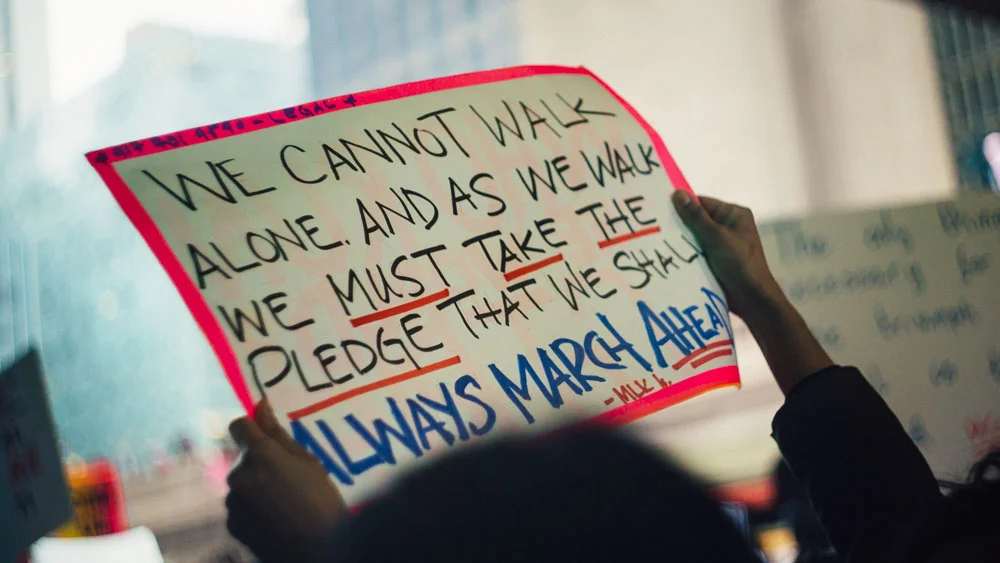 WE CANNOT WALK
ALONE. AND AS WE WALK
WE MUST TAKE THE
PLEDGE THAT WE SHALL
ALWAYS MARCH AHEAD
-MLK Jr.
LEGAL
The only thing
necessary for
triumph